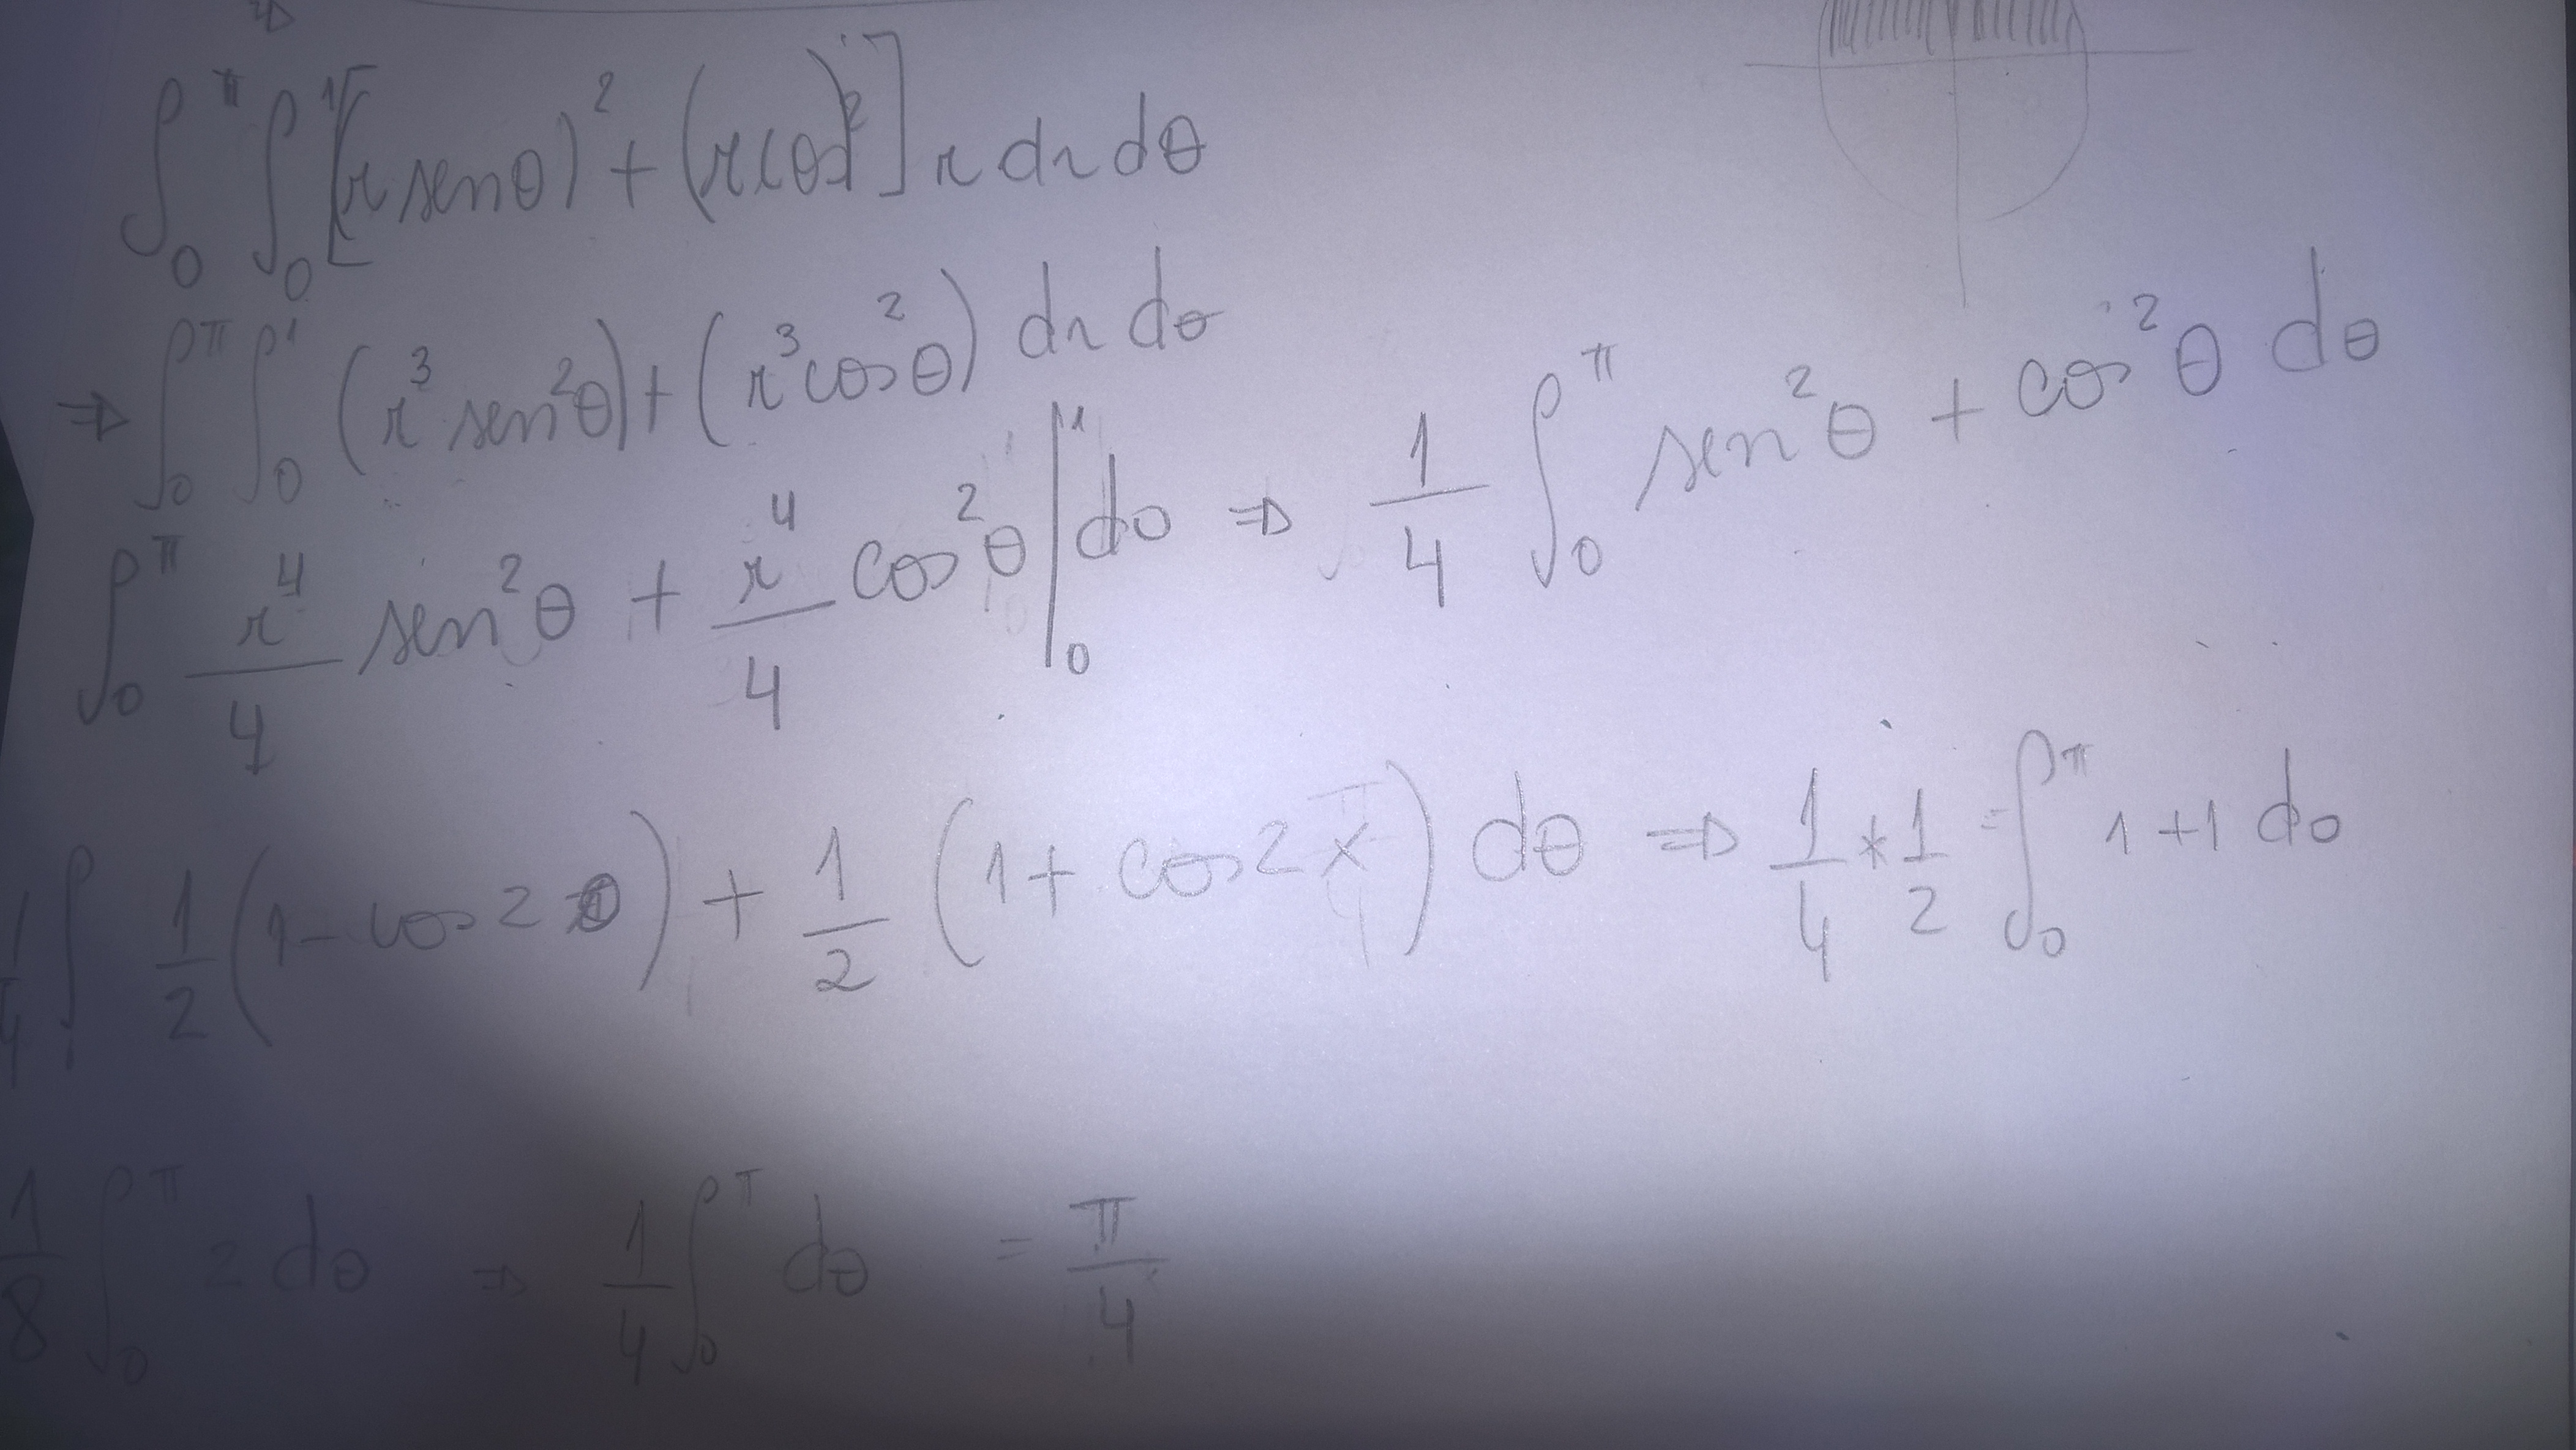 ⇒
∫₀^π ∫₀^1 [(r senθ)² + (r cosθ)²] r dr dθ
⇒ ∫₀^π ∫₀^1 (r³ sen²θ) + (r³ cos²θ) dr dθ
∫₀^π r⁴/4 sen²θ + r⁴/4 cos²θ |₀^1 dθ ⇒ 1/4 ∫₀^π sen²θ + cos²θ dθ
1/4 ∫ 1/2 (1 - cos 2θ) + 1/2 (1 + cos 2x) dθ ⇒ 1/4 * 1/2 = ∫₀^π 1 + 1 dθ
1/8 ∫₀^π 2 dθ ⇒ 1/4 ∫₀^π dθ = π/4